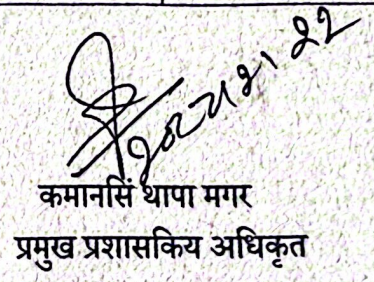 कमानसिं थापा मगर
प्रमुख प्रशासकिय अधिकृत